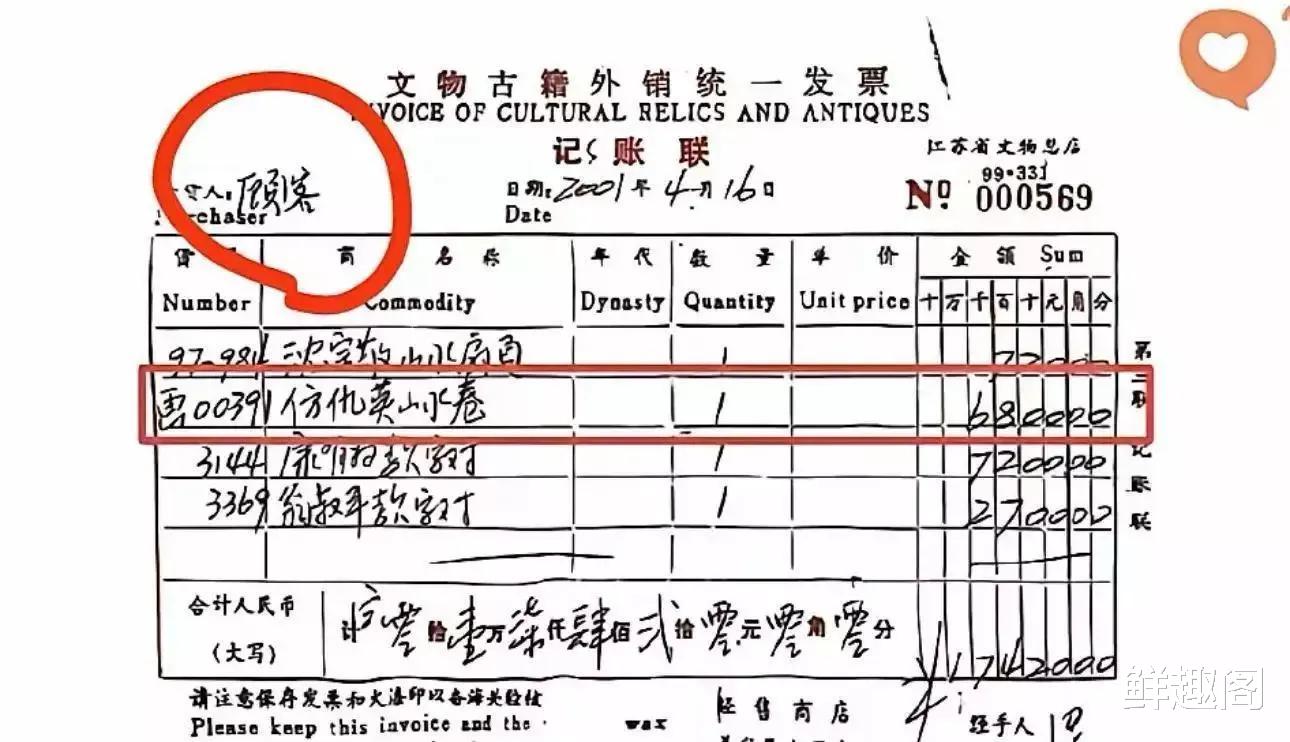 文物古籍外销统一发票
INVOICE OF CULTURAL RELICS AND ANTIQUES
记账联
江苏省文物总店
99·331
人:顾客
日期:2001年4月16日
Nº 000569
Purchaser
Date
货 商 名 称 年 代 数 量 单 价 金 额 Sum
Number Commodity Dynasty Quantity Unit price 十 万 千 百 十 元 角 分
97-984 沈宗敬山水扇面 1 72000
票00391 仿仇英山水卷 1 680000
3144 款字对 1 720000
3369 翁叔平款字对 1 270000
第二联 记账联
合计人民币
(大写)
计 零拾壹万柒仟肆佰贰拾零元零角零分
¥1742000
请注意保存发票和火漆印以备海关检核
Please keep this invoice and the wax
经售商店
经手人
鲜趣阁